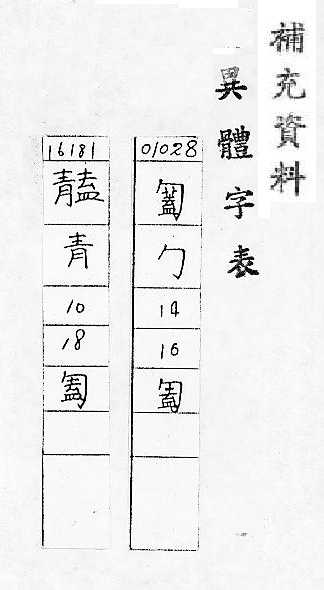 補充資料
異體字表
01028
勹
14
16
匎
16181
青
10
18
匎